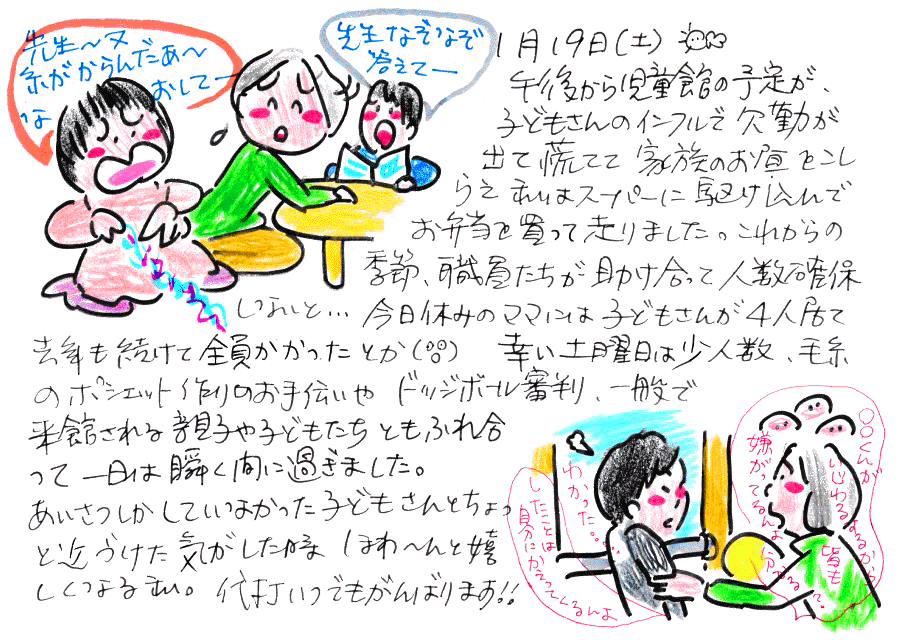 先生〜又
糸がからんだぁ〜
なおしてー
先生なぞなぞ
答えてー
1月19日(土)
午後から児童館の予定が、
子どもさんのインフルで欠勤が
出て慌てて家族のお昼をこし
らえ私はスーパーに駆け込んで
お弁当を買って走りました。これからの
季節、職員たちが助け合って人数確保
しないと… 今日休みのママには子どもさんが4人居て
去年も続けて全員かかったとか 幸い土曜日は少人数、毛糸
のポシェット作りのお手伝いや ドッジボール審判、一般で
来館される親子や子どもたちともふれ合
って一日は瞬く間に過ぎました。
あいさつしかしていなかった子どもさんとちょっ
と近づけた気がした時 ほわ〜んと嬉
しくなる私。代打いつでもがんばります!!
〇〇くんが
いじわるするから皆も
嫌がってるんよ分かる?
わかった…
したことは
自分にかえってくるんよ